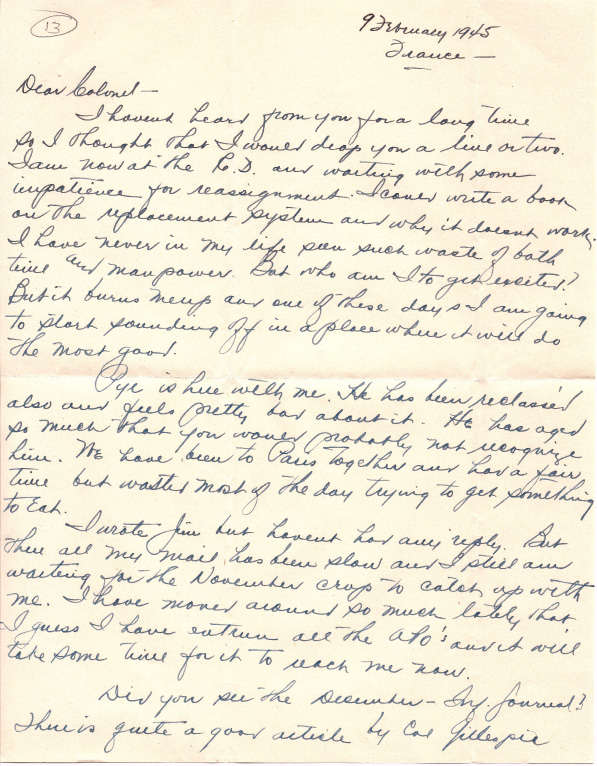 13
9 February 1945
France —
Dear Colonel —
I havent heard from you for a long time
so I thought that I would drop you a line or two.
I am now at the R.D. and waiting with some
impatience for reassignment. I could write a book
on the replacement system and why it doesnt work.
I have never in my life seen such waste of both
time and manpower. But who am I to get excited?
But it burns me up and one of these days I am going
to start sounding off in a place where it will do
the most good.
Pye is here with me. He has been reclassed
also and feels pretty bad about it. He has aged
so much that you would probably not recognize
him. We have been to Paris together and had a fair
time but wasted most of the day trying to get something
to Eat.
I wrote Jim but havent had any reply. But
then all my mail has been slow and I still am
waiting for the November crop to catch up with
me. I have moved around so much lately that
I guess I have all the APO's and it will
take some time for it to reach me now.
Did you see the December — Inf. Journal?
There is quite a good article by Col Gillespie